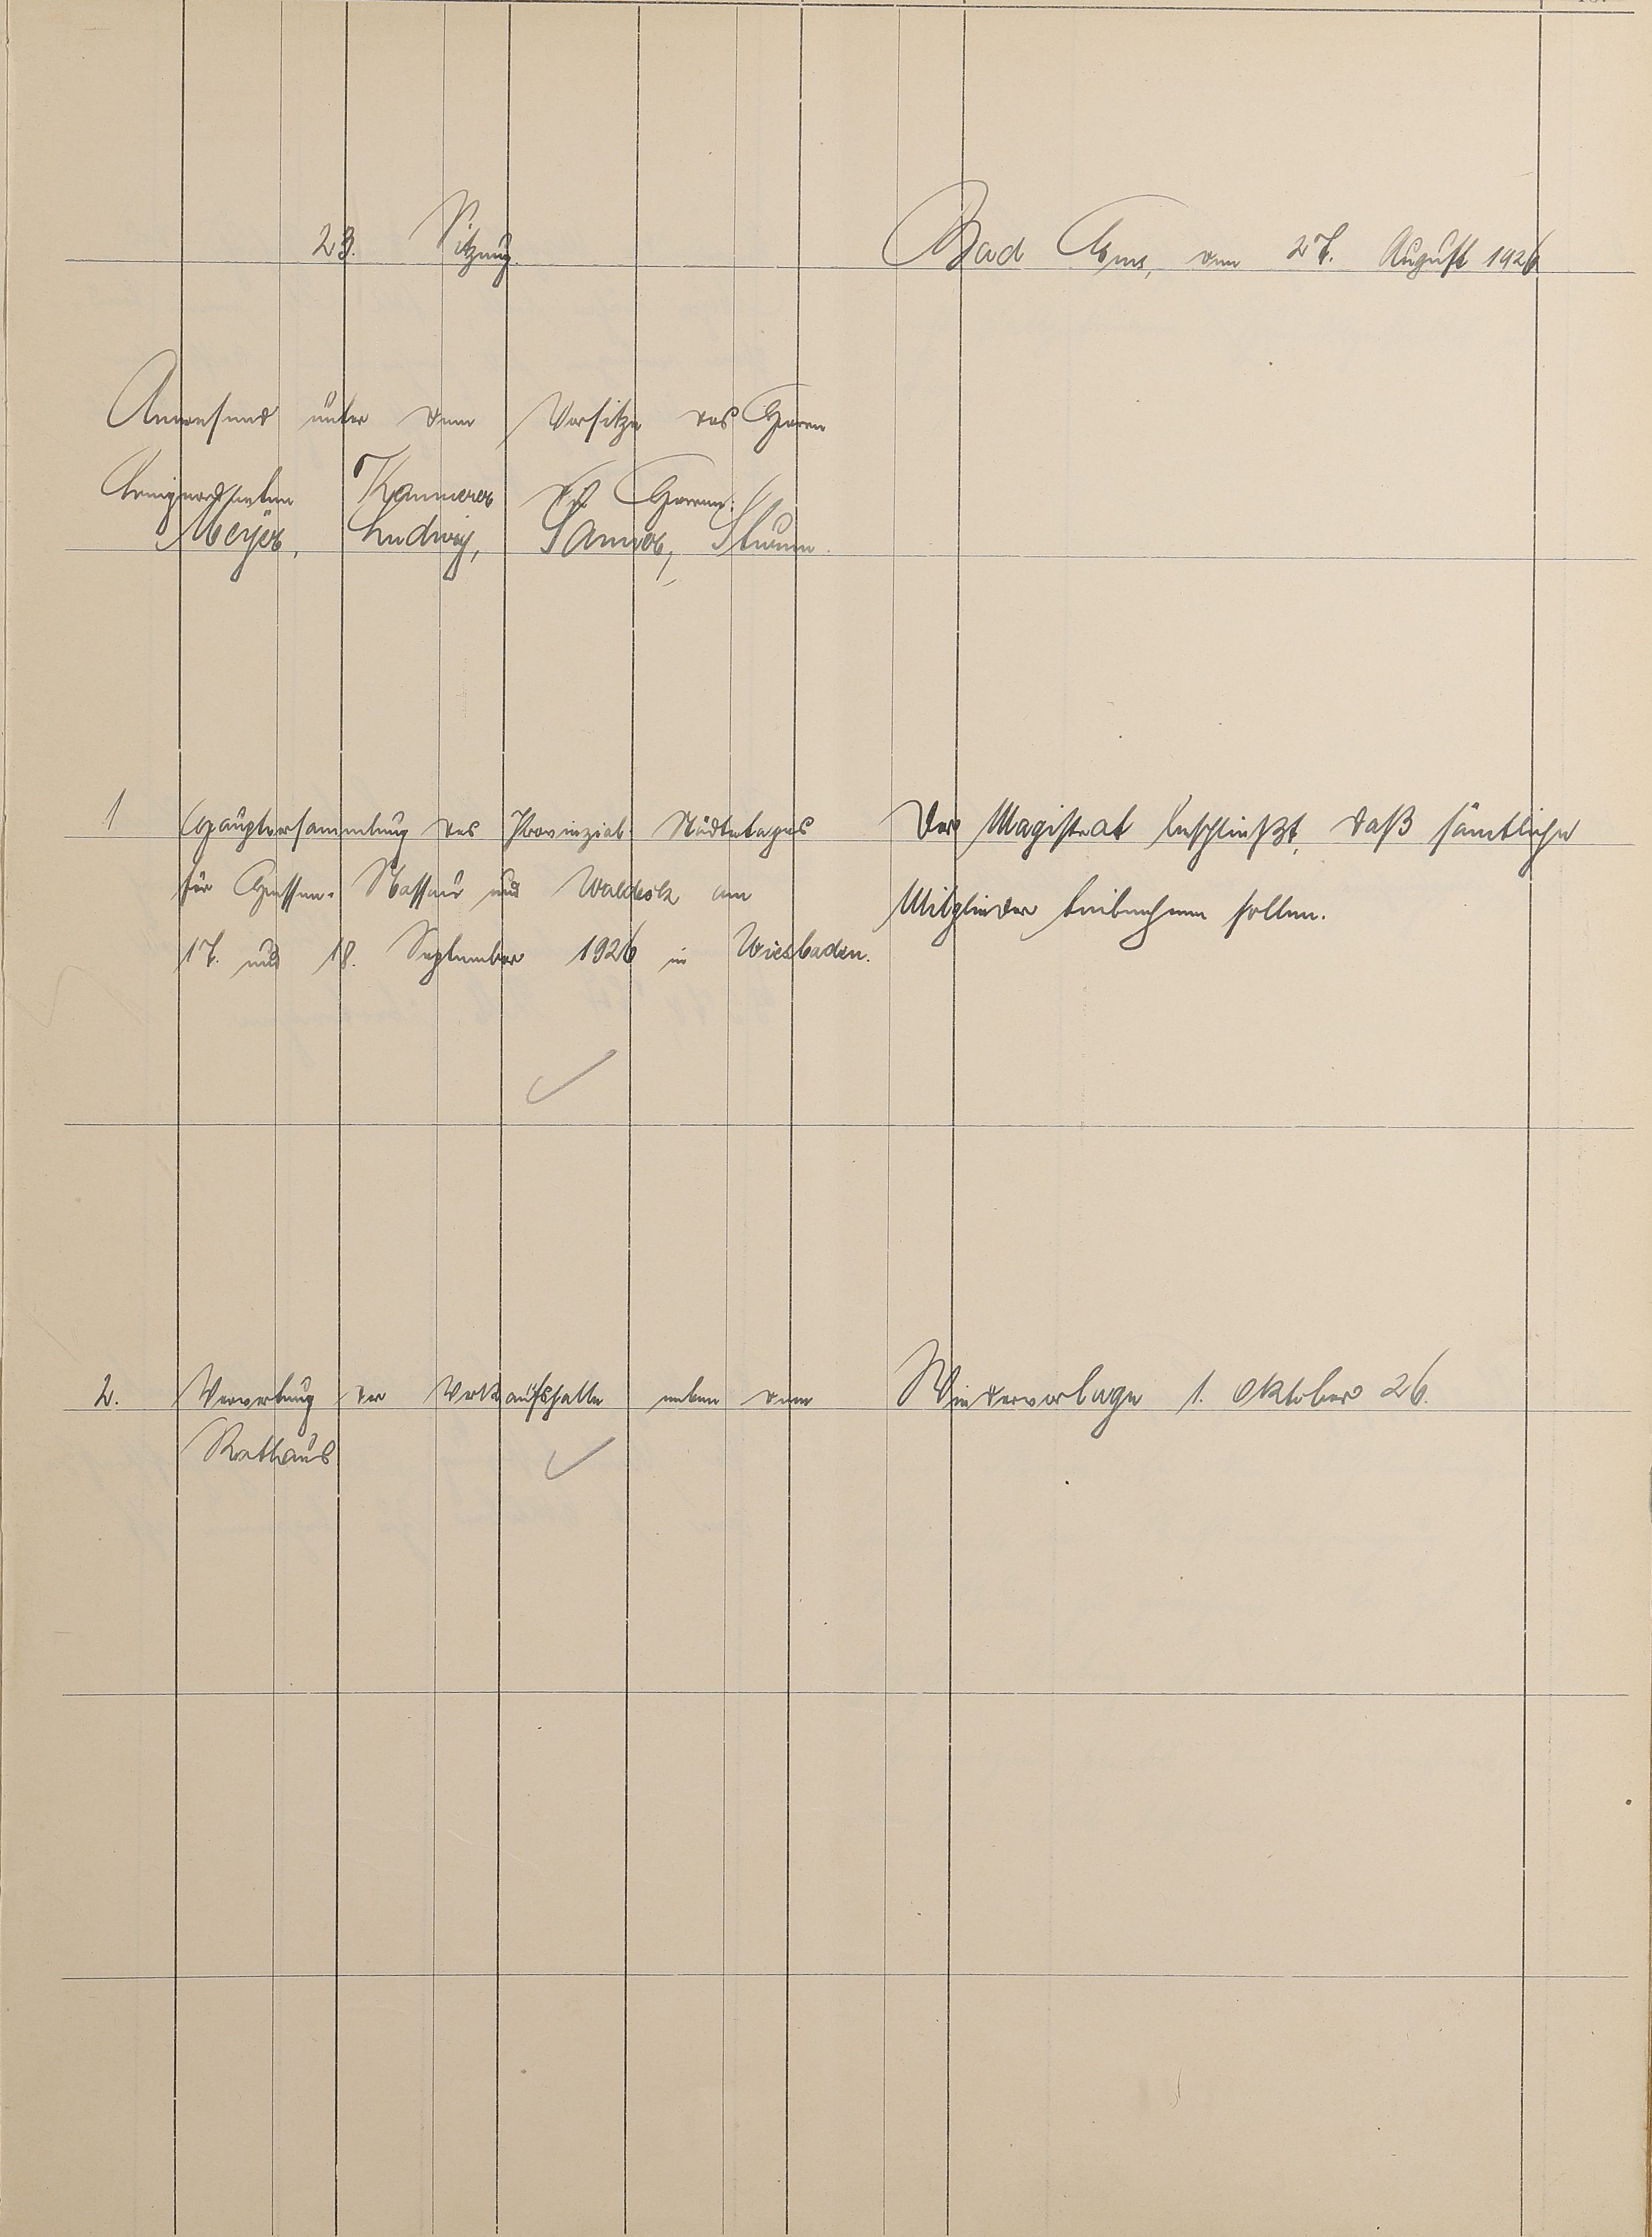 23. Sitzung.
Bad Ems, den 27. August 1926
Anwesend unter dem Vorsitze des Herrn
Beigeordneten Kammerer die Herren:
Meyer, Ludwig, Sanner, Sturm.
1 Hauptversammlung des Provinzial-Städtetages
für Hessen-Nassau und Waldeck am
17. und 18. September 1926 in Wiesbaden.
Der Magistrat beschließt, daß sämtliche
Mitglieder teilnehmen sollen.
2. Verwertung der Verkaufshalle neben dem
Rathaus
Wiedervorlage 1. Oktober 26.